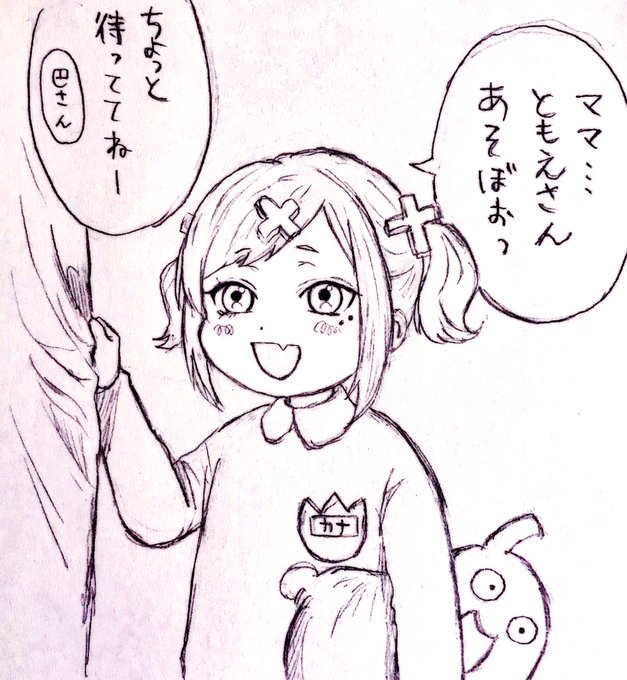 ママ…
ともえさん
あそぼおっ
ちょっと
待っててねー
巴さん
カナ